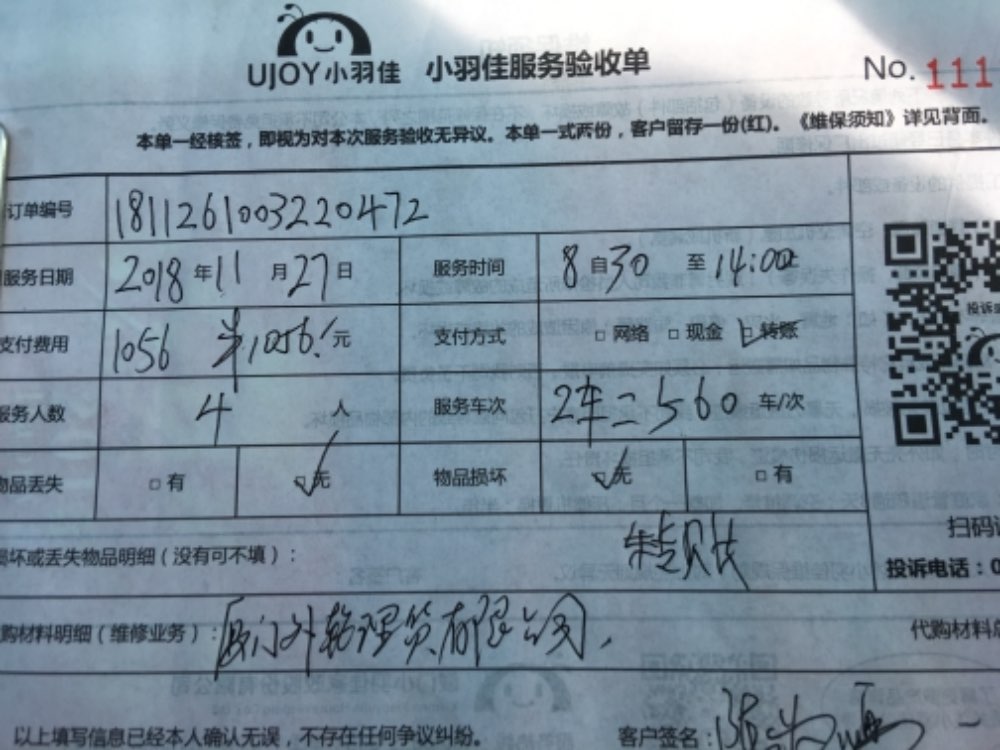 UJOY小羽佳 小羽佳服务验收单 No. 111
本单一经核签，即视为对本次服务验收无异议。本单一式两份，客户留存一份(红)。《维保须知》详见背面。
订单编号 1811261003220472
服务日期 2018 年 11 月 27 日 服务时间 8 自 30 至 14:00止
支付费用 1056 1056.元 支付方式 □ 网络 □ 现金 □ 转账
服务人数 4 人 服务车次 2车二560 车/次
物品丢失 □ 有 □ 无 物品损坏 □ 无 □ 有
损坏或丢失物品明细（没有可不填）：
扫码
投诉
投诉电话：0
代购材料明细（维修业务）：厦门外轮理货有限公司 代购材料
以上填写信息已经本人确认无误，不存在任何争议纠纷。 客户签名：